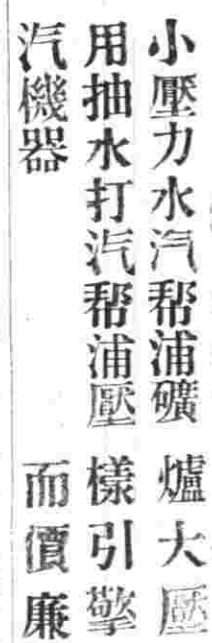 小壓力水汽帮浦礦 爐大壓
用抽水打汽帮浦壓 樣引擎
汽機器 而價廉